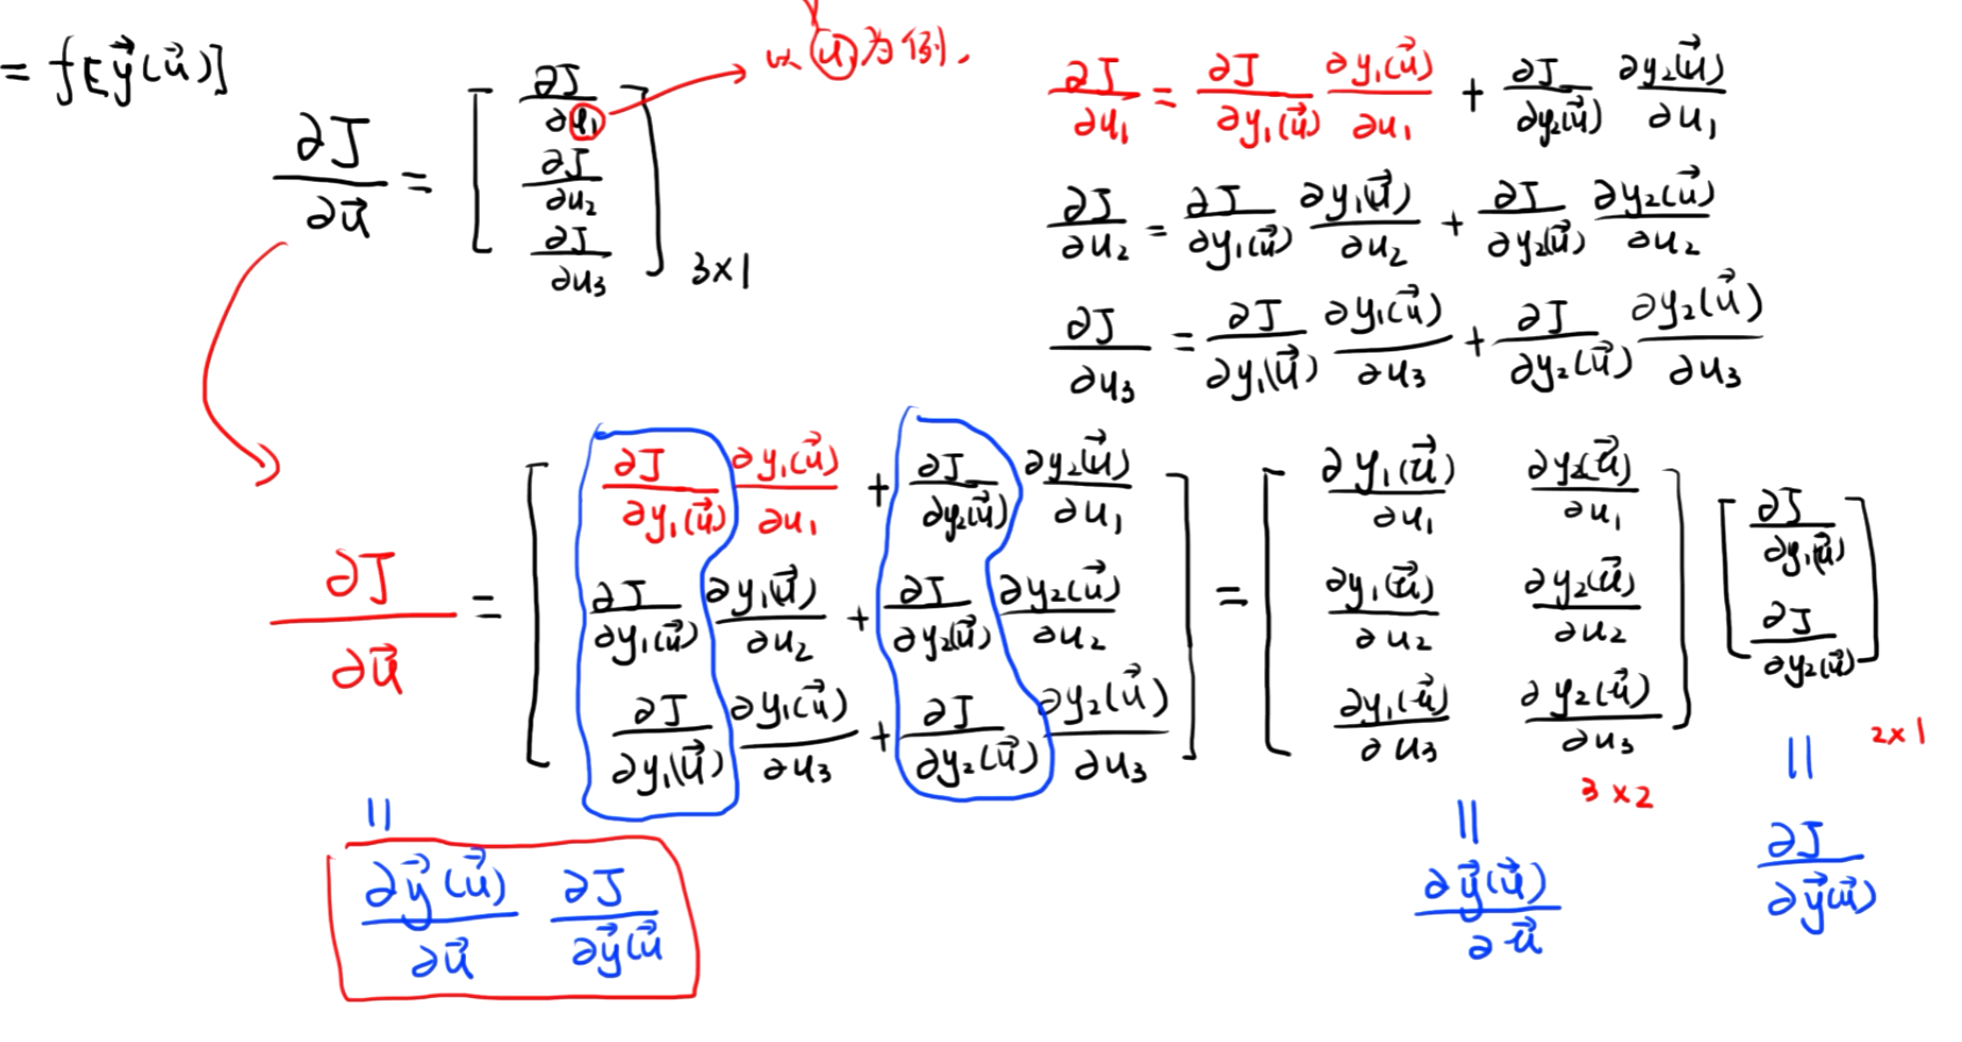 = f[y⃗(u⃗)]
∂J/∂u⃗ = [ ∂J/∂u₁ ; ∂J/∂u₂ ; ∂J/∂u₃ ] 3×1
以 u₁ 为例.
∂J/∂u₁ = ∂J/∂y₁(u⃗) ∂y₁(u⃗)/∂u₁ + ∂J/∂y₂(u⃗) ∂y₂(u⃗)/∂u₁
∂J/∂u₂ = ∂J/∂y₁(u⃗) ∂y₁(u⃗)/∂u₂ + ∂J/∂y₂(u⃗) ∂y₂(u⃗)/∂u₂
∂J/∂u₃ = ∂J/∂y₁(u⃗) ∂y₁(u⃗)/∂u₃ + ∂J/∂y₂(u⃗) ∂y₂(u⃗)/∂u₃
∂J/∂u⃗ = [ ∂J/∂y₁(u⃗) ∂y₁(u⃗)/∂u₁ + ∂J/∂y₂(u⃗) ∂y₂(u⃗)/∂u₁ ; ∂J/∂y₁(u⃗) ∂y₁(u⃗)/∂u₂ + ∂J/∂y₂(u⃗) ∂y₂(u⃗)/∂u₂ ; ∂J/∂y₁(u⃗) ∂y₁(u⃗)/∂u₃ + ∂J/∂y₂(u⃗) ∂y₂(u⃗)/∂u₃ ] = [ ∂y₁(u⃗)/∂u₁ ∂y₂(u⃗)/∂u₁ ; ∂y₁(u⃗)/∂u₂ ∂y₂(u⃗)/∂u₂ ; ∂y₁(u⃗)/∂u₃ ∂y₂(u⃗)/∂u₃ ] 3×2 [ ∂J/∂y₁(u⃗) ; ∂J/∂y₂(u⃗) ] 2×1
= ∂y⃗(u⃗)/∂u⃗ ∂J/∂y⃗(u⃗
= ∂y⃗(u⃗)/∂u⃗
= ∂J/∂y⃗(u⃗)